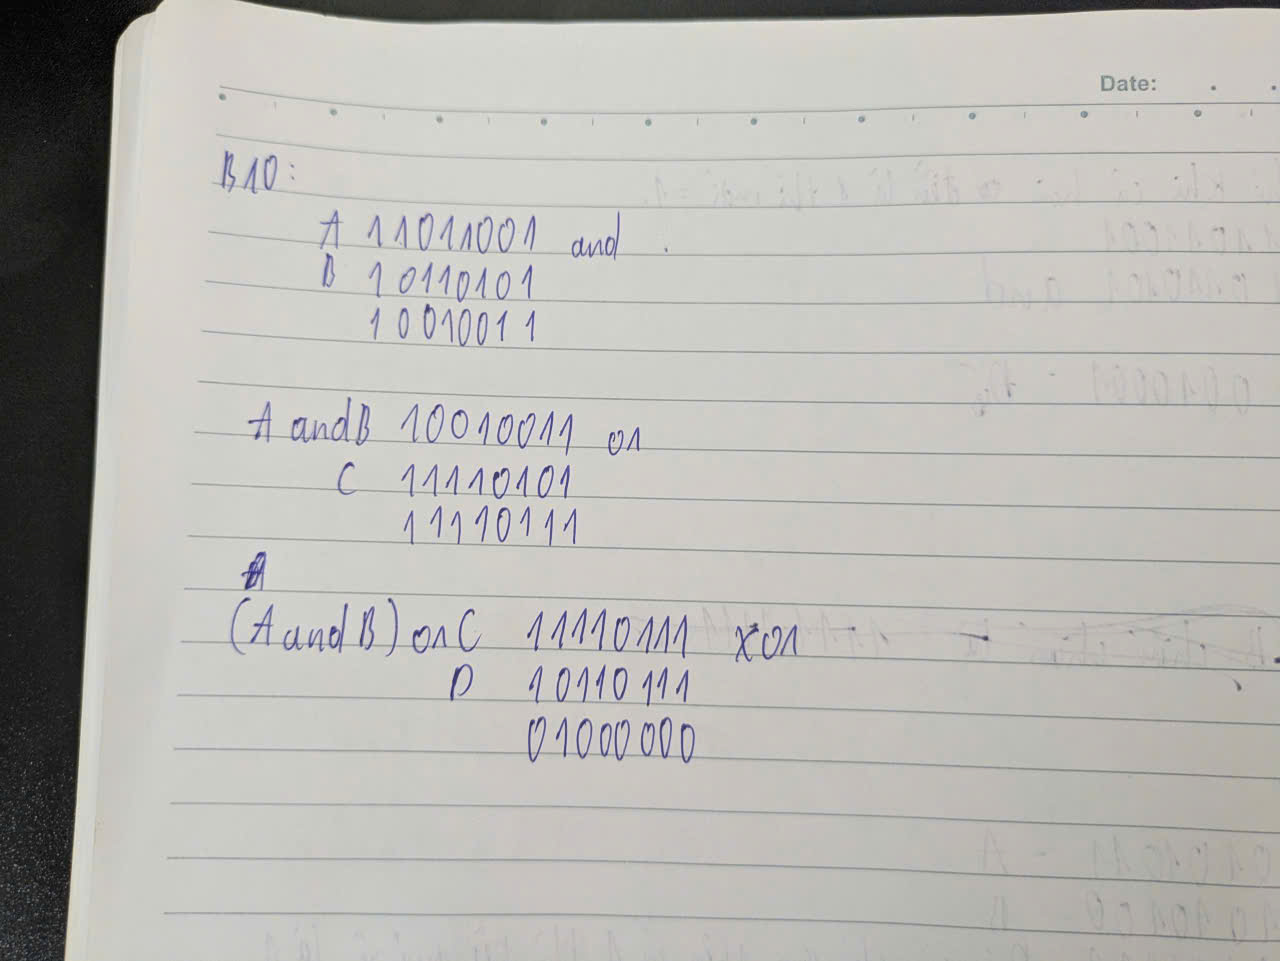 Date: . .
B10:
A 11011001 and .
B 10110101
10010011
A and B 10010011 or
C 11110101
11110111
A
(A and B) or C 11110111 xor
D 10110111
01000000